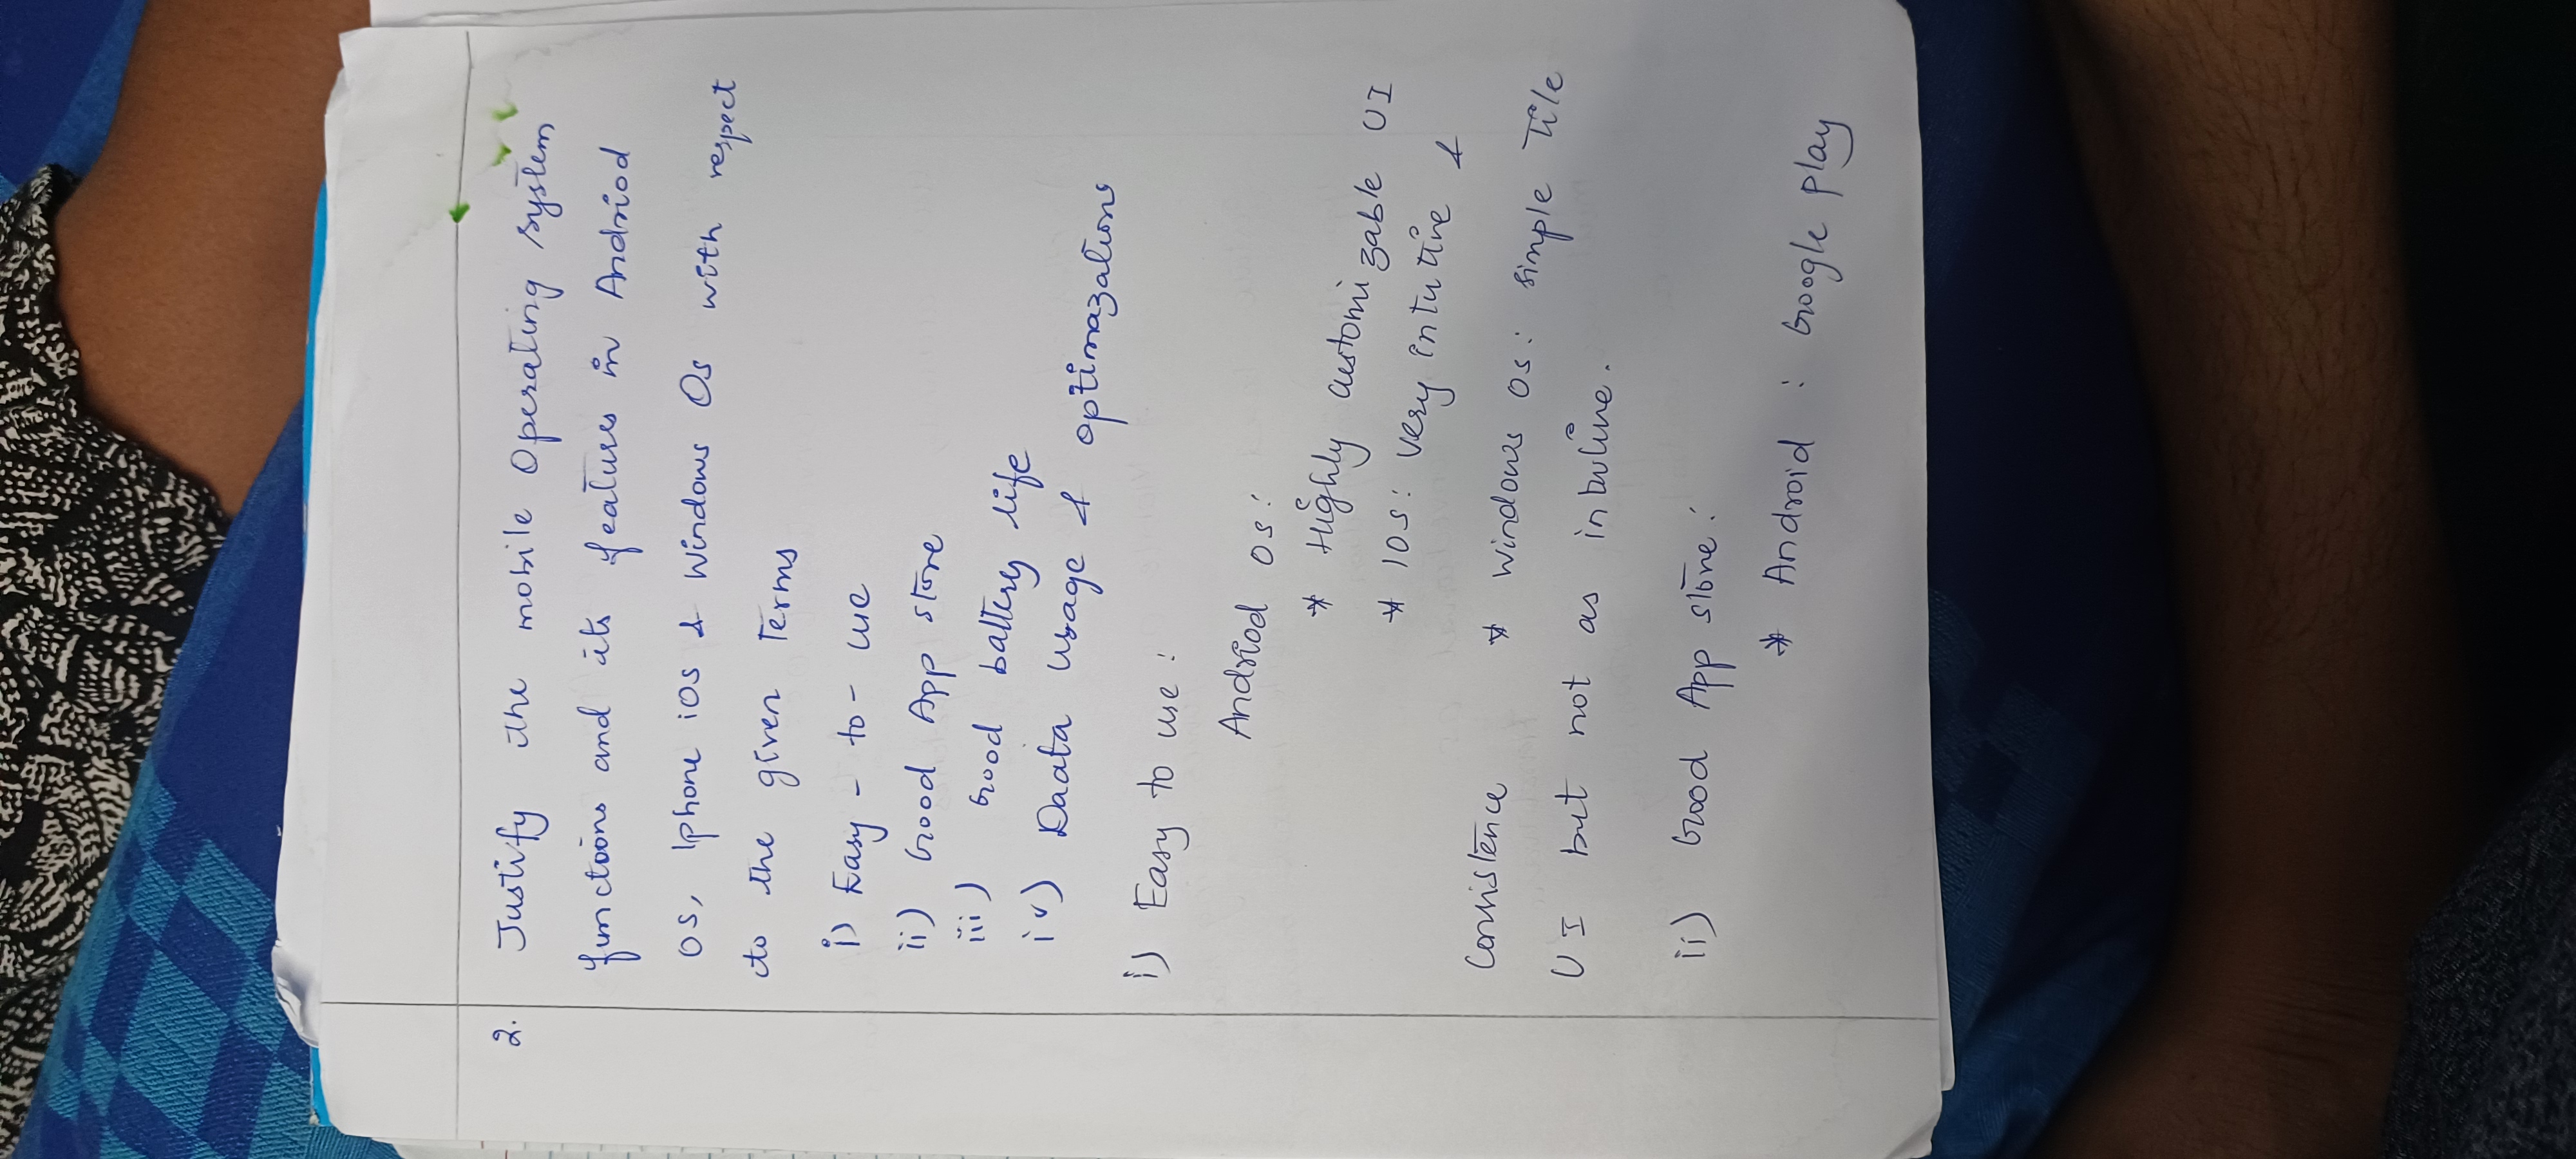 2. Justify the mobile Operating system
functoons and its features in Andriod
OS, Iphone iOS & Windows Os with respect
to the given Terms
i) Easy - to - use
ii) Good App store
iii) Good battery life
iv) Daata usage & optimazations
i) Easy to use :
Andriod os :
* Highly customizable UI
* IOS : very intutive &
Consistence * Windows Os : simple Tile
UI but not as intutive.
ii) Good App store :
* Android : Google play